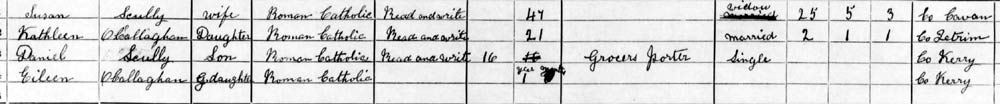 Susan Scully wife Roman Catholic Read and write 47 widow married 25 5 3 Co Cavan
Kathleen O'Callaghan Daughter Roman Catholic Read and write 21 married 2 1 1 Co Letrim
Daniel Scully Son Roman Catholic Read and write 16 16 Grocers Porter Single Co Kerry
Eileen O'Callaghan G.daughter Roman Catholic 1 Co Kerry